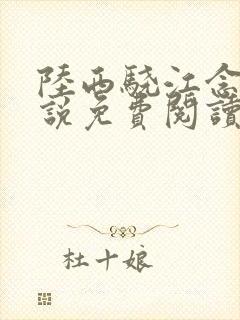 陸西驍江念
說免費閱讀
杜十娘